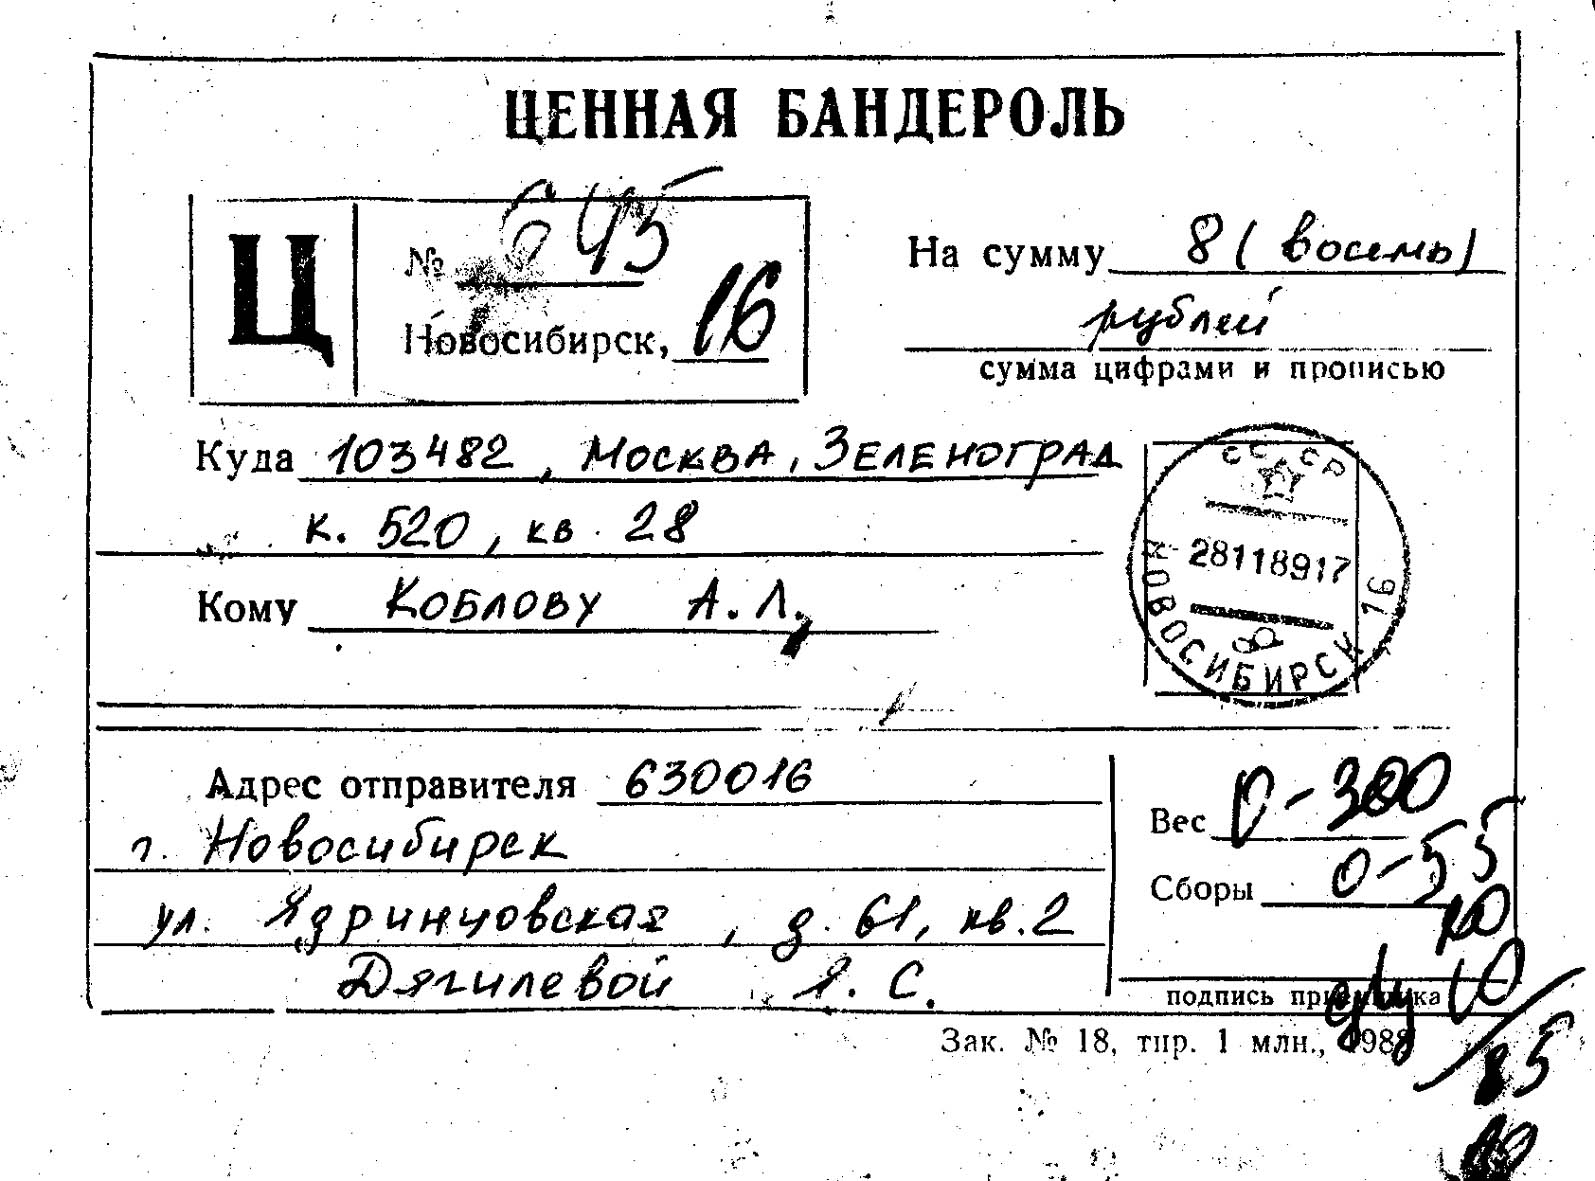 ЦЕННАЯ БАНДЕРОЛЬ
Ц
№ 645
Новосибирск, 16
На сумму 8 (восемь)
рублей
сумма цифрами и прописью
Куда 103482, Москва, Зеленоград
к. 520, кв. 28
Кому Коблову А. Л.
СССР
28118917
НОВОСИБИРСК 16
Адрес отправителя 630016
г. Новосибирск
ул. Ядринцовская, д. 61, кв. 2
Дягилевой Я. С.
Вес 0-300
Сборы 0-55
10
подпись приемщика
85
Зак. № 18, тир. 1 млн., 1988